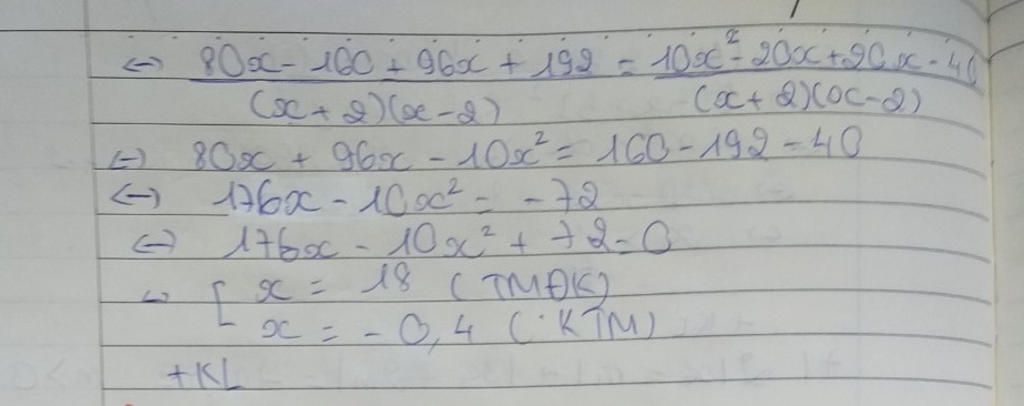 <=> (80x - 160 + 96x + 192)/((x + 2)(x - 2)) = (10x² - 20x + 20x - 40)/((x + 2)(x - 2))
<=> 80x + 96x - 10x² = 160 - 192 - 40
<=> 176x - 10x² = - 72
<=> 176x - 10x² + 72 = 0
<=> [ x = 18 (TMĐK)
x = - 0,4 (KTM)
+KL